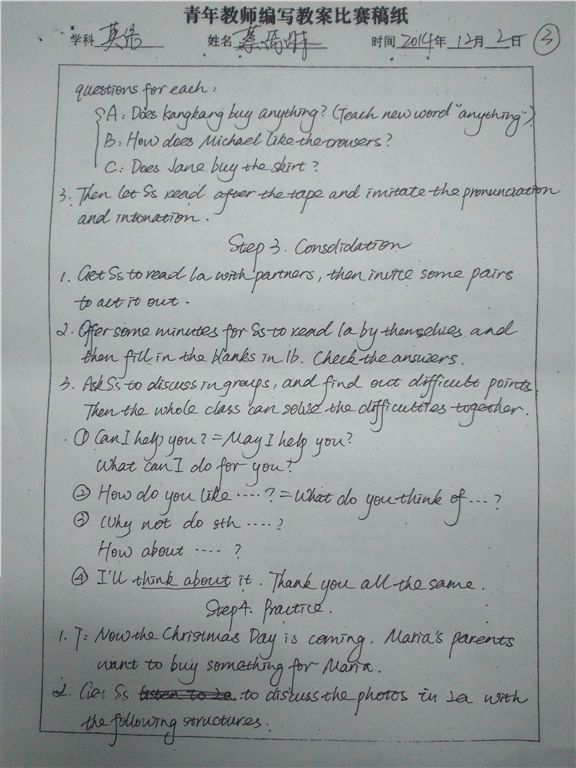 青年教师编写教案比赛稿纸
学科 英语 姓名 时间 2014年 12月 2日 ③
questions for each:
A: Does Kangkang buy anything? (Teach new word "anything")
B: How does Michael like the trousers?
C: Does Jane buy the skirt?
3. Then let Ss read after the tape and imitate the pronunciation
and intonation.
Step 3. Consolidation
1. Get Ss to read 1a with partners, then invite some pairs
to act it out.
2. Offer some minutes for Ss to read 1a by themselves and
then fill in the blanks in 1b. Check the answers.
3. Ask Ss to discuss in groups, and find out difficult points.
Then the whole class can solve the difficulties together.
① Can I help you? = May I help you?
What can I do for you?
② How do you like ····? = What do you think of ···?
③ Why not do sth ····?
How about ····?
④ I'll think about it. Thank you all the same.
Step 4. Practice.
1. T: Now the Christmas Day is coming. Maria's parents
want to buy something for Maria.
2. Get Ss listen to 2a to discuss the photos in 2a with
the following structures.